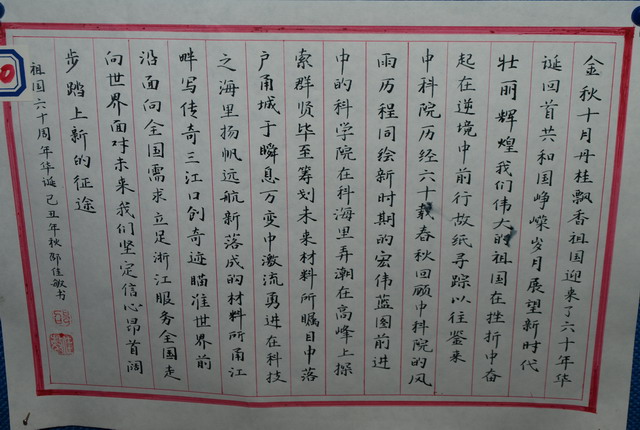 金秋十月丹桂飘香祖国迎来了六十年华
诞回首共和国峥嵘岁月展望新时代
壮丽辉煌我们伟大的祖国在挫折中奋
起在逆境中前行故纸寻踪以往鉴来
中科院历经六十载春秋回顾中科院的风
雨历程同绘新时期的宏伟蓝图前进
中的科学院在科海里弄潮在高峰上探
索群贤毕至筹划未来材料所瞩目中落
户甬城于瞬息万变中激流勇进在科技
之海里扬帆远航新落成的材料所甬江
畔写传奇三江口创奇迹瞄准世界前
沿面向全国需求立足浙江服务全国走
向世界面对未来我们坚定信心昂首阔
步踏上新的征途
祖国六十周年华诞己丑年秋邵佳敏书